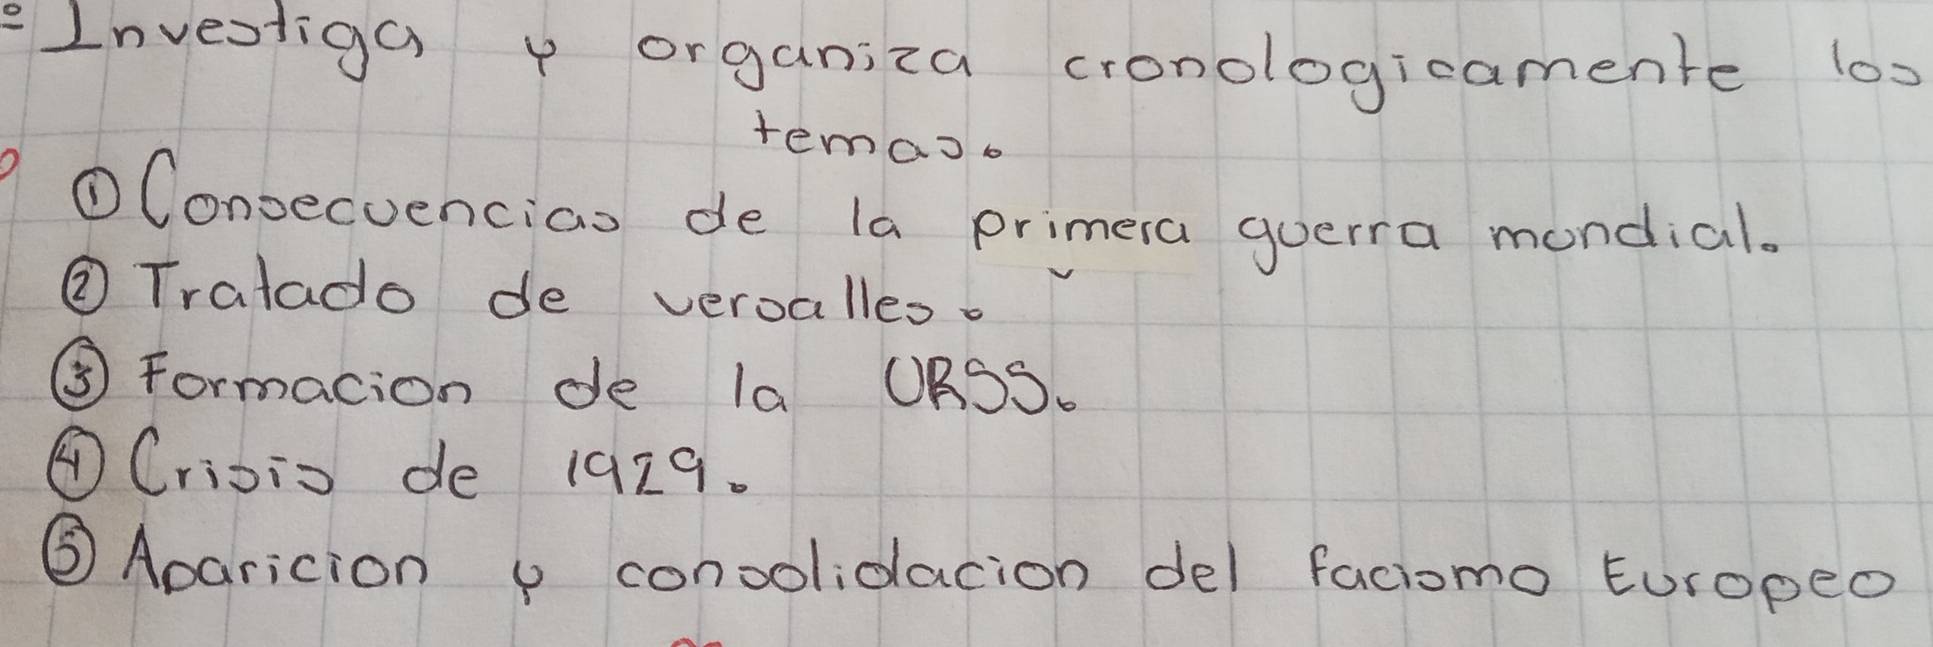 Investiga y organiza cronologicamente los
temas.
① Consecuencias de la primera guerra mundial.
② Tratado de versalles.
③ Formacion de la URSS.
④ Crisis de 1929.
⑤ Aparicion y consolidacion del facismo Europeo